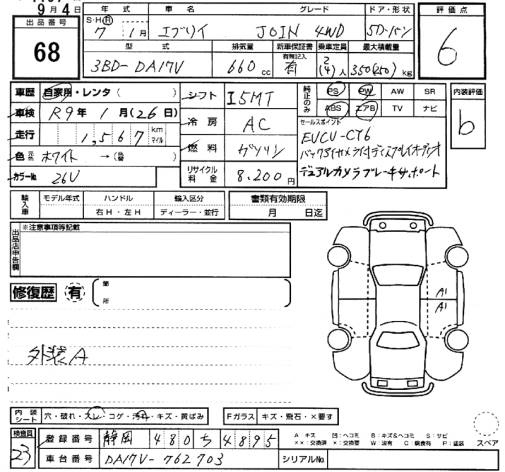 9月4日
出品番号
68
年式 車名 グレード ドア・形状
S・H・R 7年1月 エブリイ JOIN 4WD 5D・バン
型式 排気量 新車保証書 乗車定員 最大積載量
有無記入
3BD-DA17V 660cc 有 2(4)人 350(250)kg
評価点
6
車歴 自家用・レンタ( )
車検 R9年1月(26日)
走行 1,567 km マイル
色 ホワイト →( )
カラーNo. 26V
シフト I5MT
冷房 AC
燃料 ガソリン
リサイクル料金 8,200円
純正のみ PS PW AW SR
ABS エアB TV ナビ
セールスポイント
EVCU-CY6
バックアイカメラ付ディスプレイオーディオ
デュアルカメラブレーキサポート
内装評価
b
輸入車 モデル年式 ハンドル 輸入区分 書類有効期限
右H・左H ディーラー・並行 月 日迄
出品店申告欄 ※注意事項等記載
修復歴 有 箇所
A1
A1
外装A
内装シート 穴・破れ・スレ・コゲ・汚れ・キズ・黄ばみ Fガラス キズ・飛石・×要す
検査員
23
登録番号 静岡 480ち4895
車台番号 DA17V-762703 シリアルNo.
A キズ 凹:ヘコミ B:キズ&ヘコミ S:サビ
××:交換済 ×:要交換 W:波有 C:腐食有 P:塗装 スペア